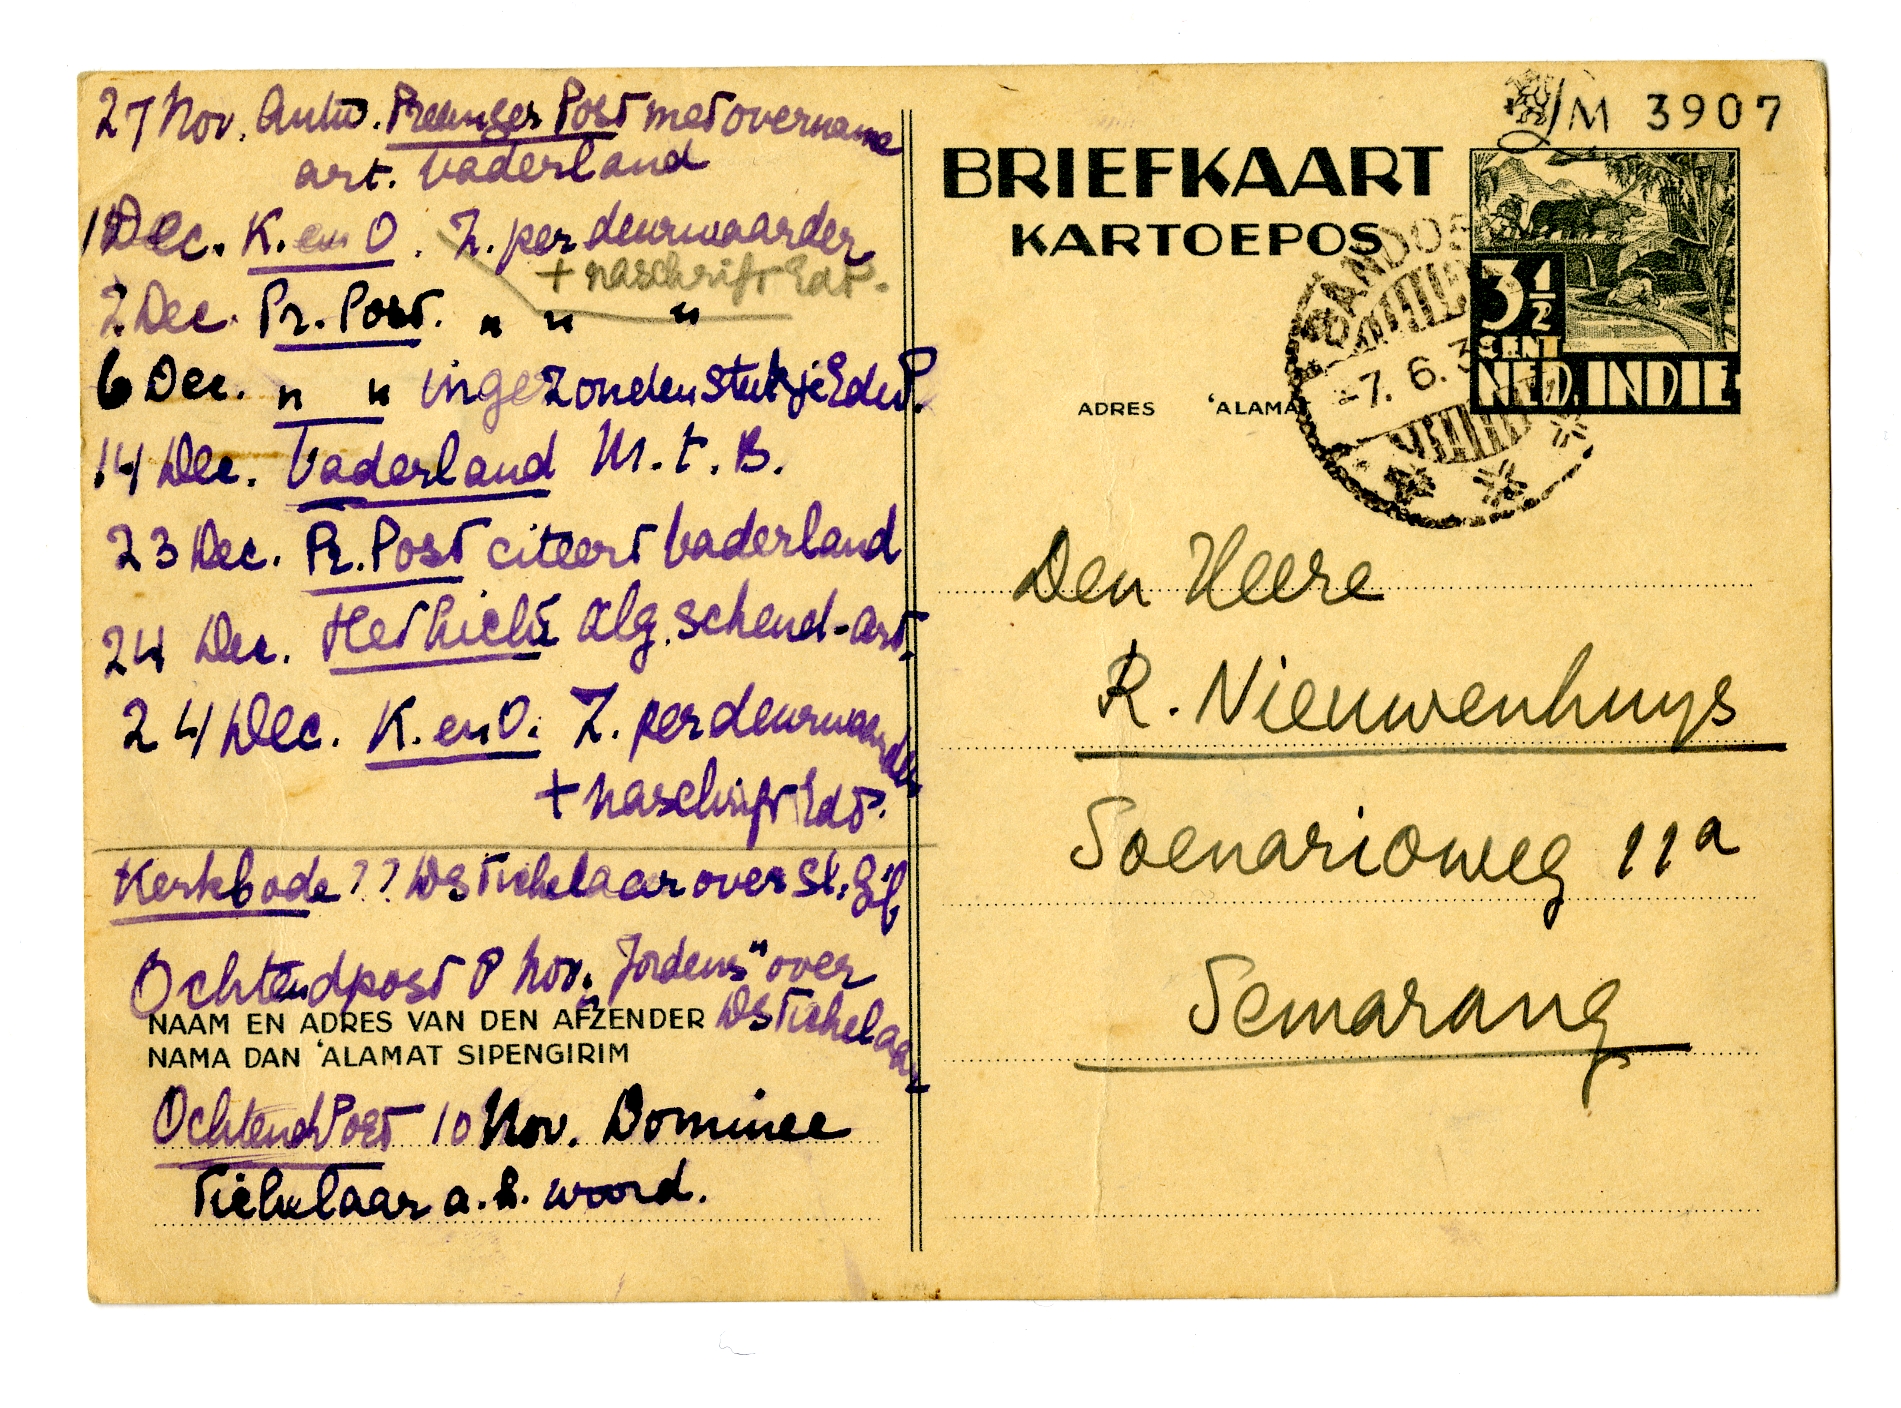 27 Nov. Antw. Preanger Post met overname
art. Vaderland
1 Dec. K. en O. Z. per deurwaarder
+ naschrift Edt.
2 Dec. Pr. Post. " " "
6 Dec. " " ingezonden stukje EduP.
14 Dec. Vaderland M. t. B.
23 Dec. Pr. Post citeert Vaderland
24 Dec. Het Licht alg. schend-art.
24 Dec. K. en O. Z. per deurwaarder
+ naschrift Edt.
Kerkbode ?? Ds Tichelaar over
Ochtendpost 8 Nov. "Jordens" over
Ds Tichelaar
NAAM EN ADRES VAN DEN AFZENDER
NAMA DAN 'ALAMAT SIPENGIRIM
OchtendPost 10 Nov. Dominee
Tichelaar a. h. woord.
M 3907
BRIEFKAART
KARTOEPOS
3½
CENT
NED. INDIE
-7.6.3
ADRES 'ALAMAT
Den Heere
R. Nieuwenhuys
Soenarioweg 11a
Semarang